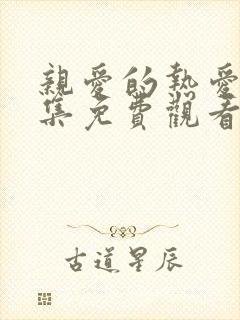 親愛的熱愛
集免費觀看
古道星辰